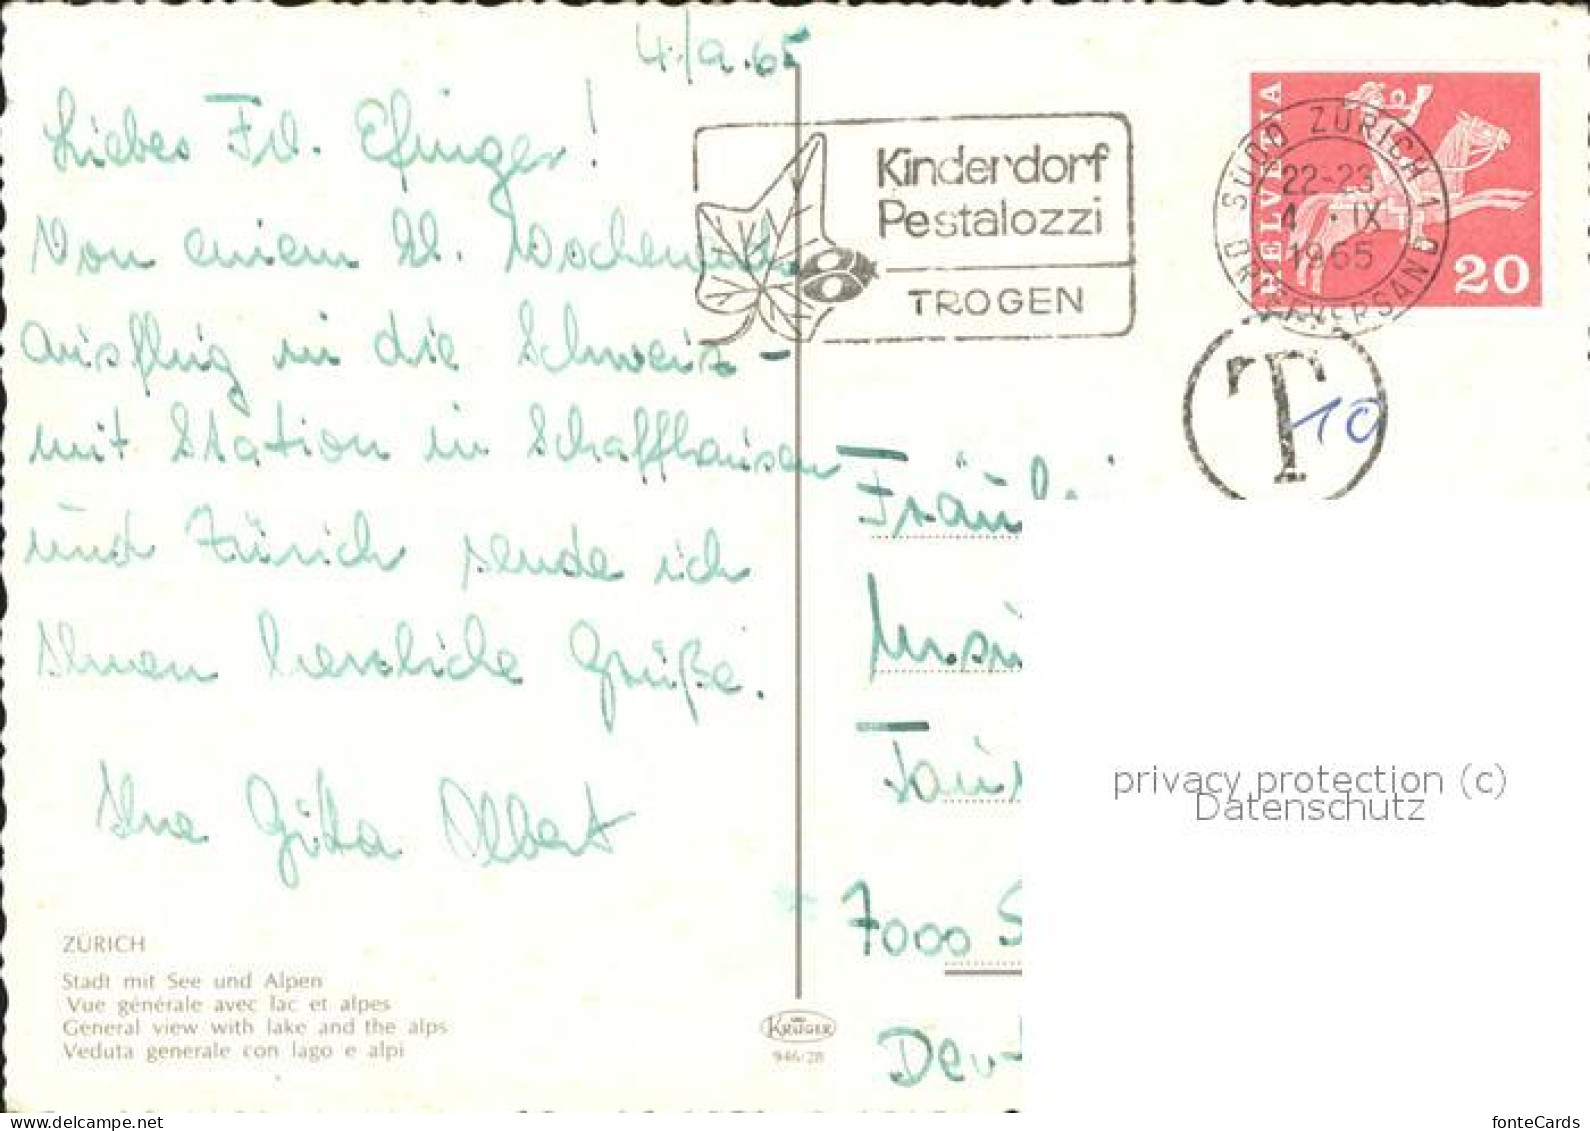 4/9.65
Liebes Frl. Efinger!
Von einem kl. Wochenend
ausflug in die Schweiz -
mit Station in Schaffhausen
und Zürich sende ich
Ihnen herzliche Grüße.
Ihre Gitta Albert
ZÜRICH
Stadt mit See und Alpen
Vue générale avec lac et alpes
General view with lake and the alps
Veduta generale con lago e alpi
KRÜGER
946/28
Kinderdorf
Pestalozzi
TROGEN
HELVETIA
20
ZÜRICH 1
22-23
4.IX
1965
BRIEFVERSAND
T
10
Fräul
Musi
7000 S
Deut
privacy protection (c)
Datenschutz
www.delcampe.net
fonteCards